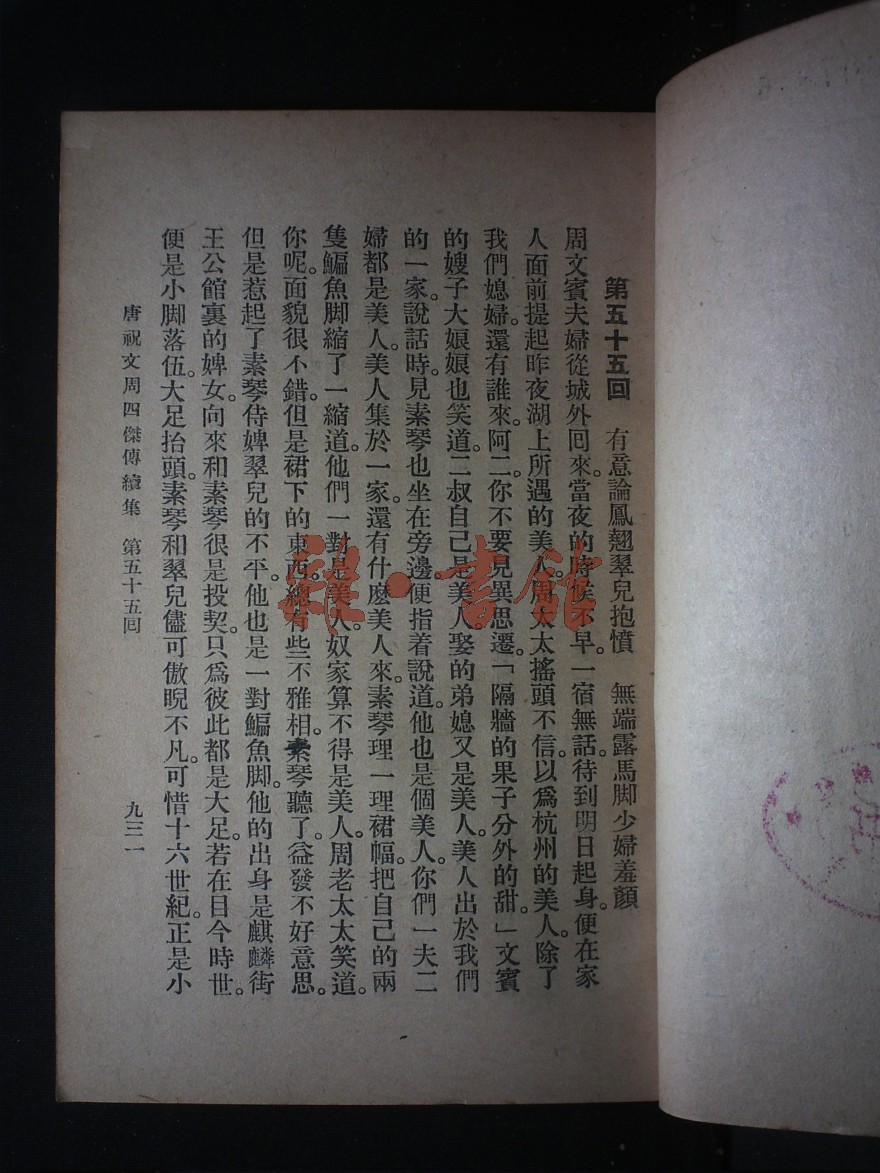 第五十五回　有意論鳳翹翠兒抱憤　無端露馬脚少婦羞顏
周文賓夫婦從城外回來。當夜的時候不早。一宿無話。待到明日起身。便在家
人面前提起昨夜湖上所遇的美人。周太太搖頭不信。以爲杭州的美人。除了
我們媳婦。還有誰來。阿二。你不要見異思遷。「隔牆的果子分外的甜。」文賓
的嫂子大娘娘也笑道。二叔自己是美人。娶的弟媳又是美人。美人出於我們
的一家。說話時。見素琴也坐在旁邊便指着說道。他也是個美人。你們一夫二
婦都是美人。美人集於一家。還有什麼美人來。素琴理一理裙幅。把自己的兩
隻鯿魚脚縮了一縮道。他們一對是美人。奴家算不得是美人。周老太太笑道。
你呢。面貌很不錯。但是裙下的東西。總有些不雅相。素琴聽了。益發不好意思。
但是惹起了素琴侍婢翠兒的不平。他也是一對鯿魚脚。他的出身是麒麟街
王公館裏的婢女。向來和素琴很是投契。只爲彼此都是大足。若在目今時世。
便是小脚落伍。大足抬頭。素琴和翠兒儘可傲睨不凡。可惜十六世紀。正是小
唐祝文周四傑傳續集　第五十五回　九三一
雜·書館